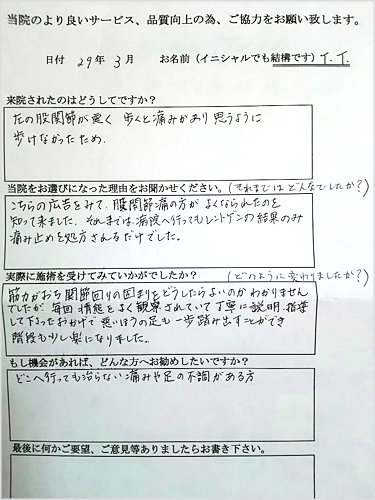 当院のより良いサービス、品質向上の為、ご協力をお願い致します。
日付 29年 3月 お名前（イニシャルでも結構です）T. T.
来院されたのはどうしてですか？
左の股関節が悪く 歩くと痛みがあり 思うように
歩けなかったため.
当院をお選びになった理由をお聞かせください。（それまではどんなでしたか？）
こちらの広告をみて、股関節痛の方が よくなられたのを
知って来ました. それまでは 病院へ行っても レントゲンの結果のみ
痛み止めを処方されるだけでした。
実際に施術を受けてみていかがでしたか？（どのように変わりましたか？）
筋力がおち関節回りの固まりをどうしたらよいのか わかりません
でしたが、毎回 状態を よく観察されていて丁寧に説明.指導
して下さったおかげで悪いほうの足も一歩踏み出すことができ
階段も少し楽になりました。
もし機会があれば、どんな方へお勧めしたいですか？
どこへ行っても治らない痛みや足の不調がある方
最後に何かご要望、ご意見等ありましたらお書き下さい。